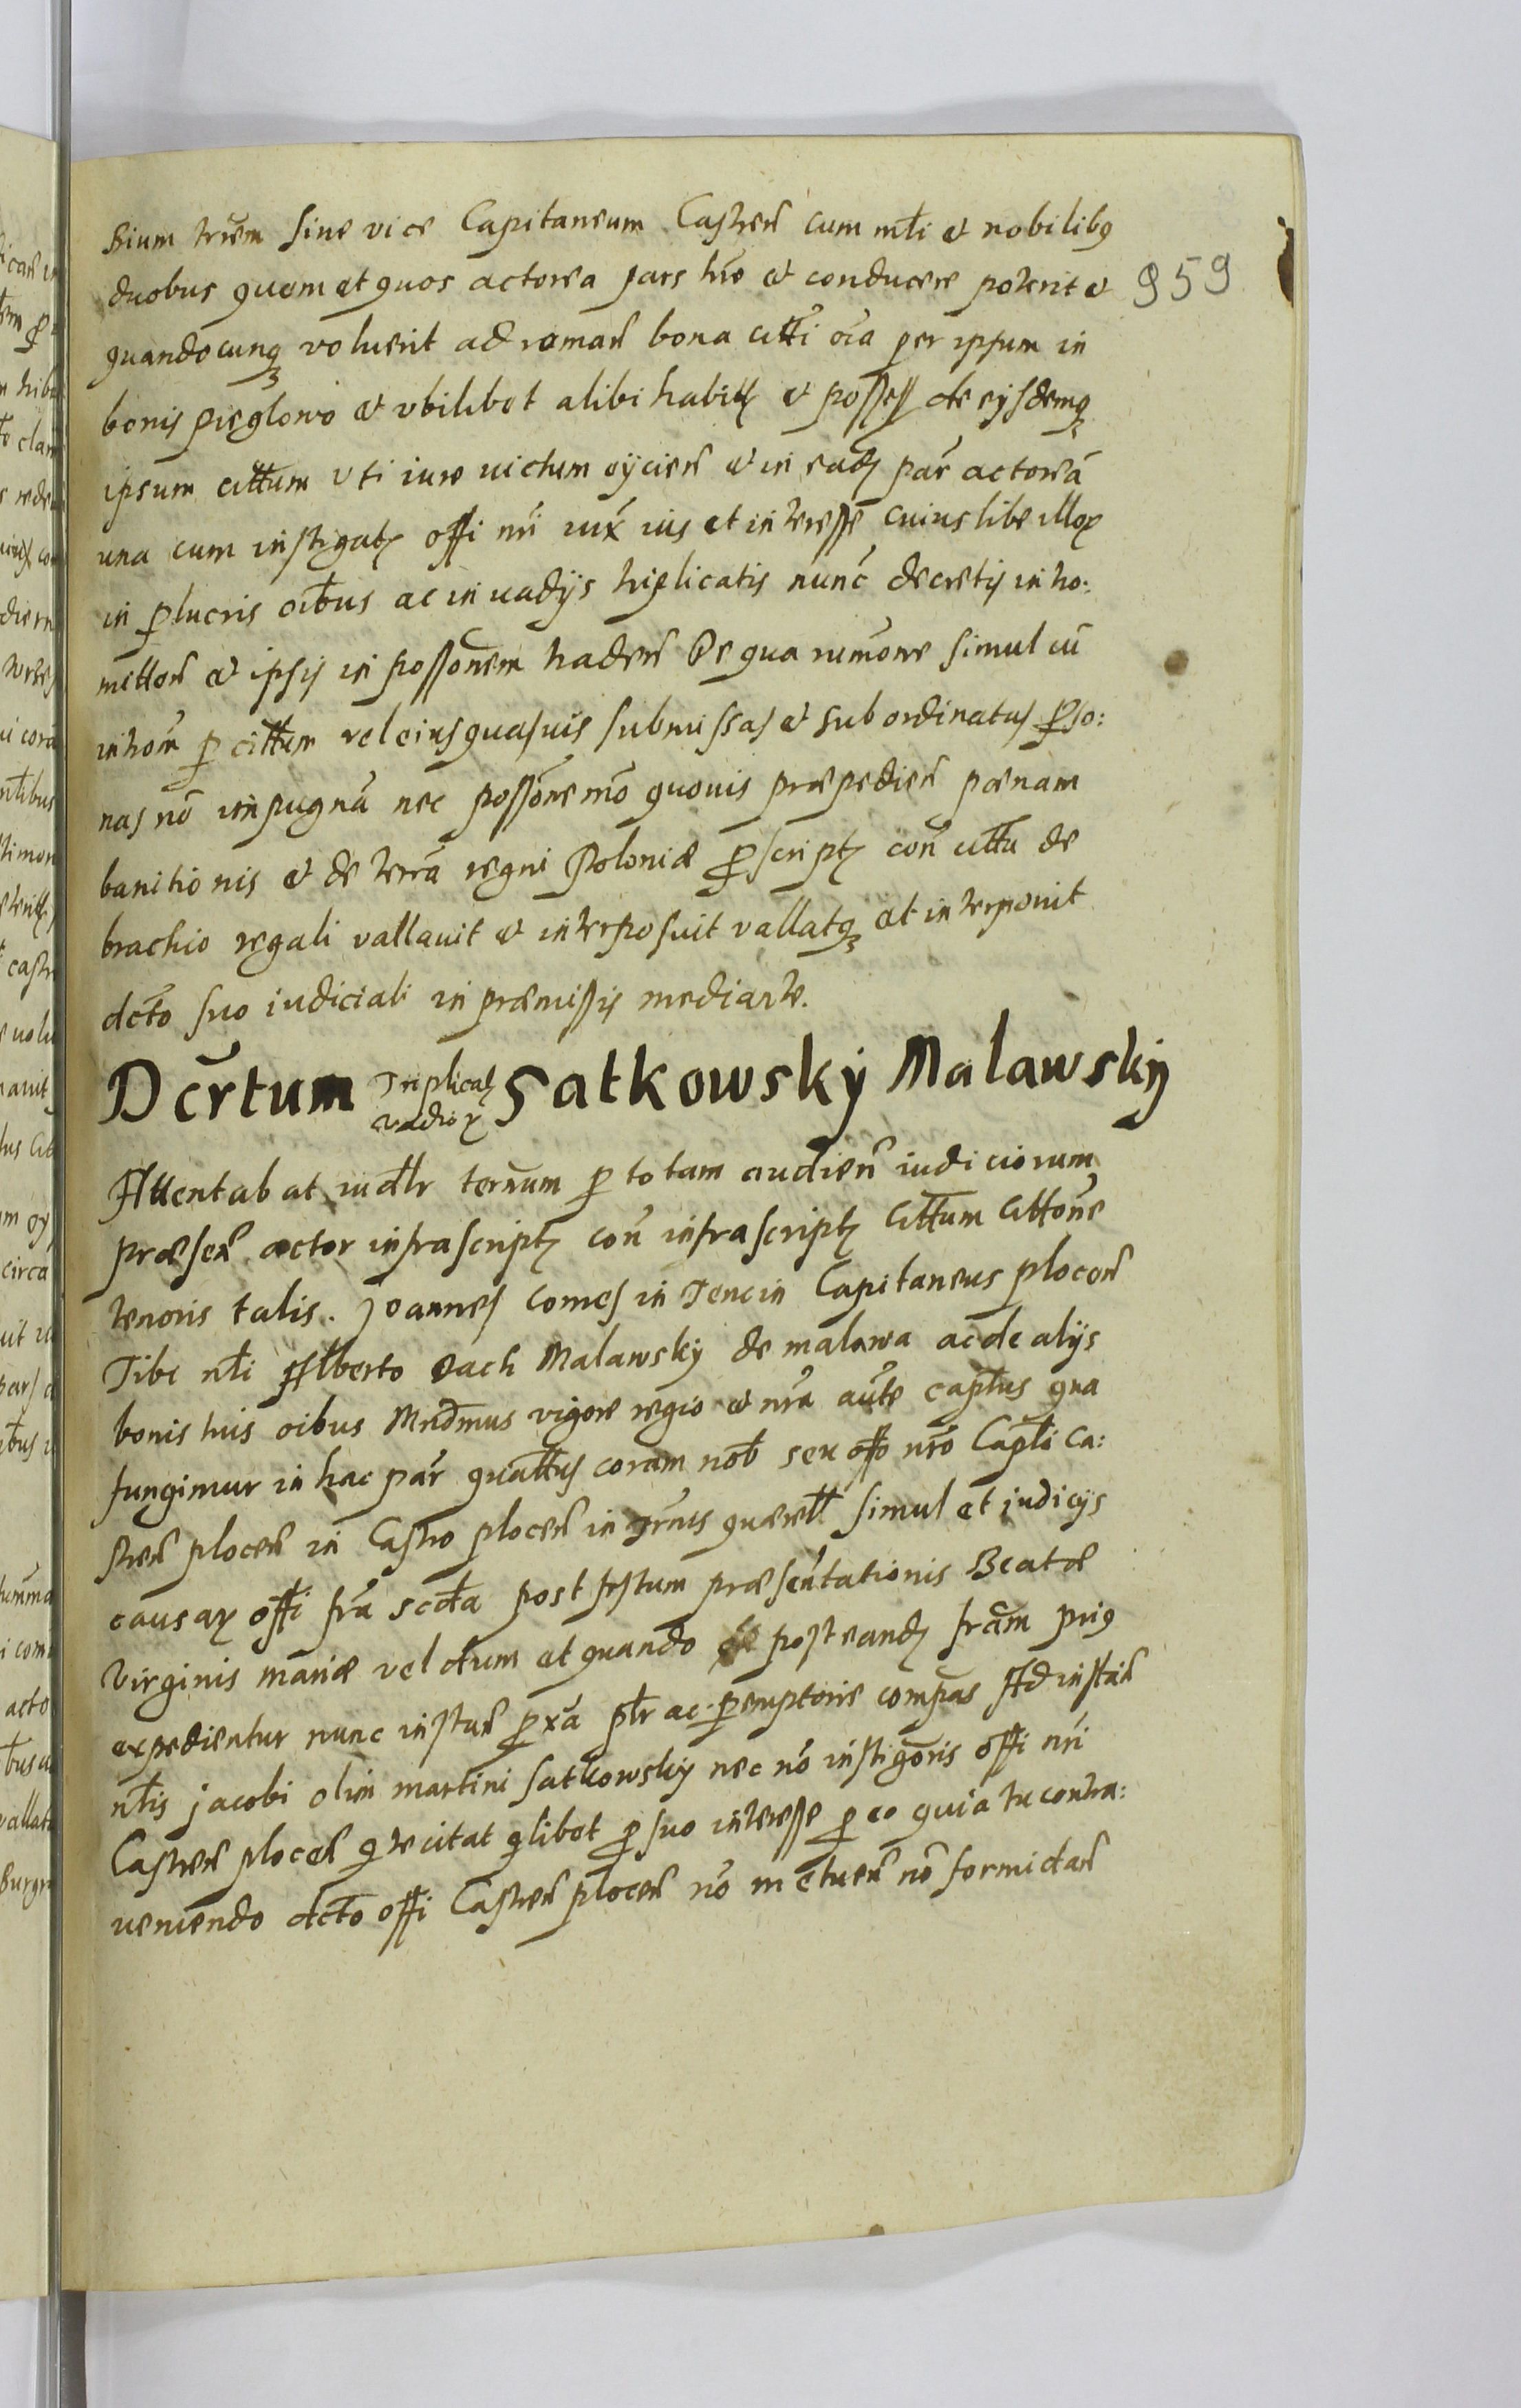 Bium trem siue vice Capitaneum Castren cum mlti et nobilibq
duobus quem et quos actorea pars hre et conducere poterit et
959
quandocunq voluerit ad reman bona citti oia per ipsum in
bonis pięglowo et vbilibet alibi habitt et possess de eysdemq
ipsum cittum vti iure uictum eÿcien et in eadz par actorea
una cum instigatz offi nri iux ius et interesse cuiuslibe illor
in plucris oibus ac in uadÿs triplicatis nunc decretis in ho:
mitton et ipsis in possonem traden De qua rumone simul cu
inhom p cittum vel eius quasuis submissas et subordinatas pso:
nas no impugna nec possone mo quouis præpedien pænam
banitionis et de terra regni Poloniæ pscriptz con cittu de
brachio regali vallauit et interposuit vallatq et interponit
dcto suo iudiciali in præmissis mediante.
Dcrtum Triplicatz vadior Satkowskÿ Malawskÿ
Attentabat iudlr ternum p totam audien iudiciorum
præsen actor infrascriptz con infrascriptz Cittum Cittone
tenoris talis. Joannes comes in Tencin Capitaneus plocen
Tibi nli Alberto Dach Malawskÿ de malawa ac de alÿs
bonis tuis oibus Mndmus vigore regio et nra aute captus qua
fungimur in hac par quattus coram nob seu offo nro Captli Ca:
stren plocen in Castro plocen in Trnis quærell simul et judicÿs
causar offi fra scda post festum præsentationis Beatæ
Virginis mariæ vel dum et quando post eandz fram priq
expedientur nunc instan pxa ptr ac pemptorie compas Ad instan
nlis jacobi olim martini satkowskÿ nec no instigoris offi nri
Castren plocen q te citat qlibet p suo interesse p eo quia tu contra:
ueniendo dcto offi Castren plocen no metuen no formidan